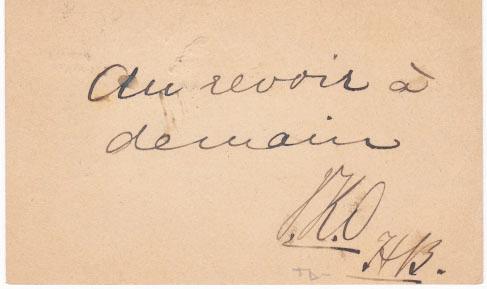 Au revoir à
demain
H.B.